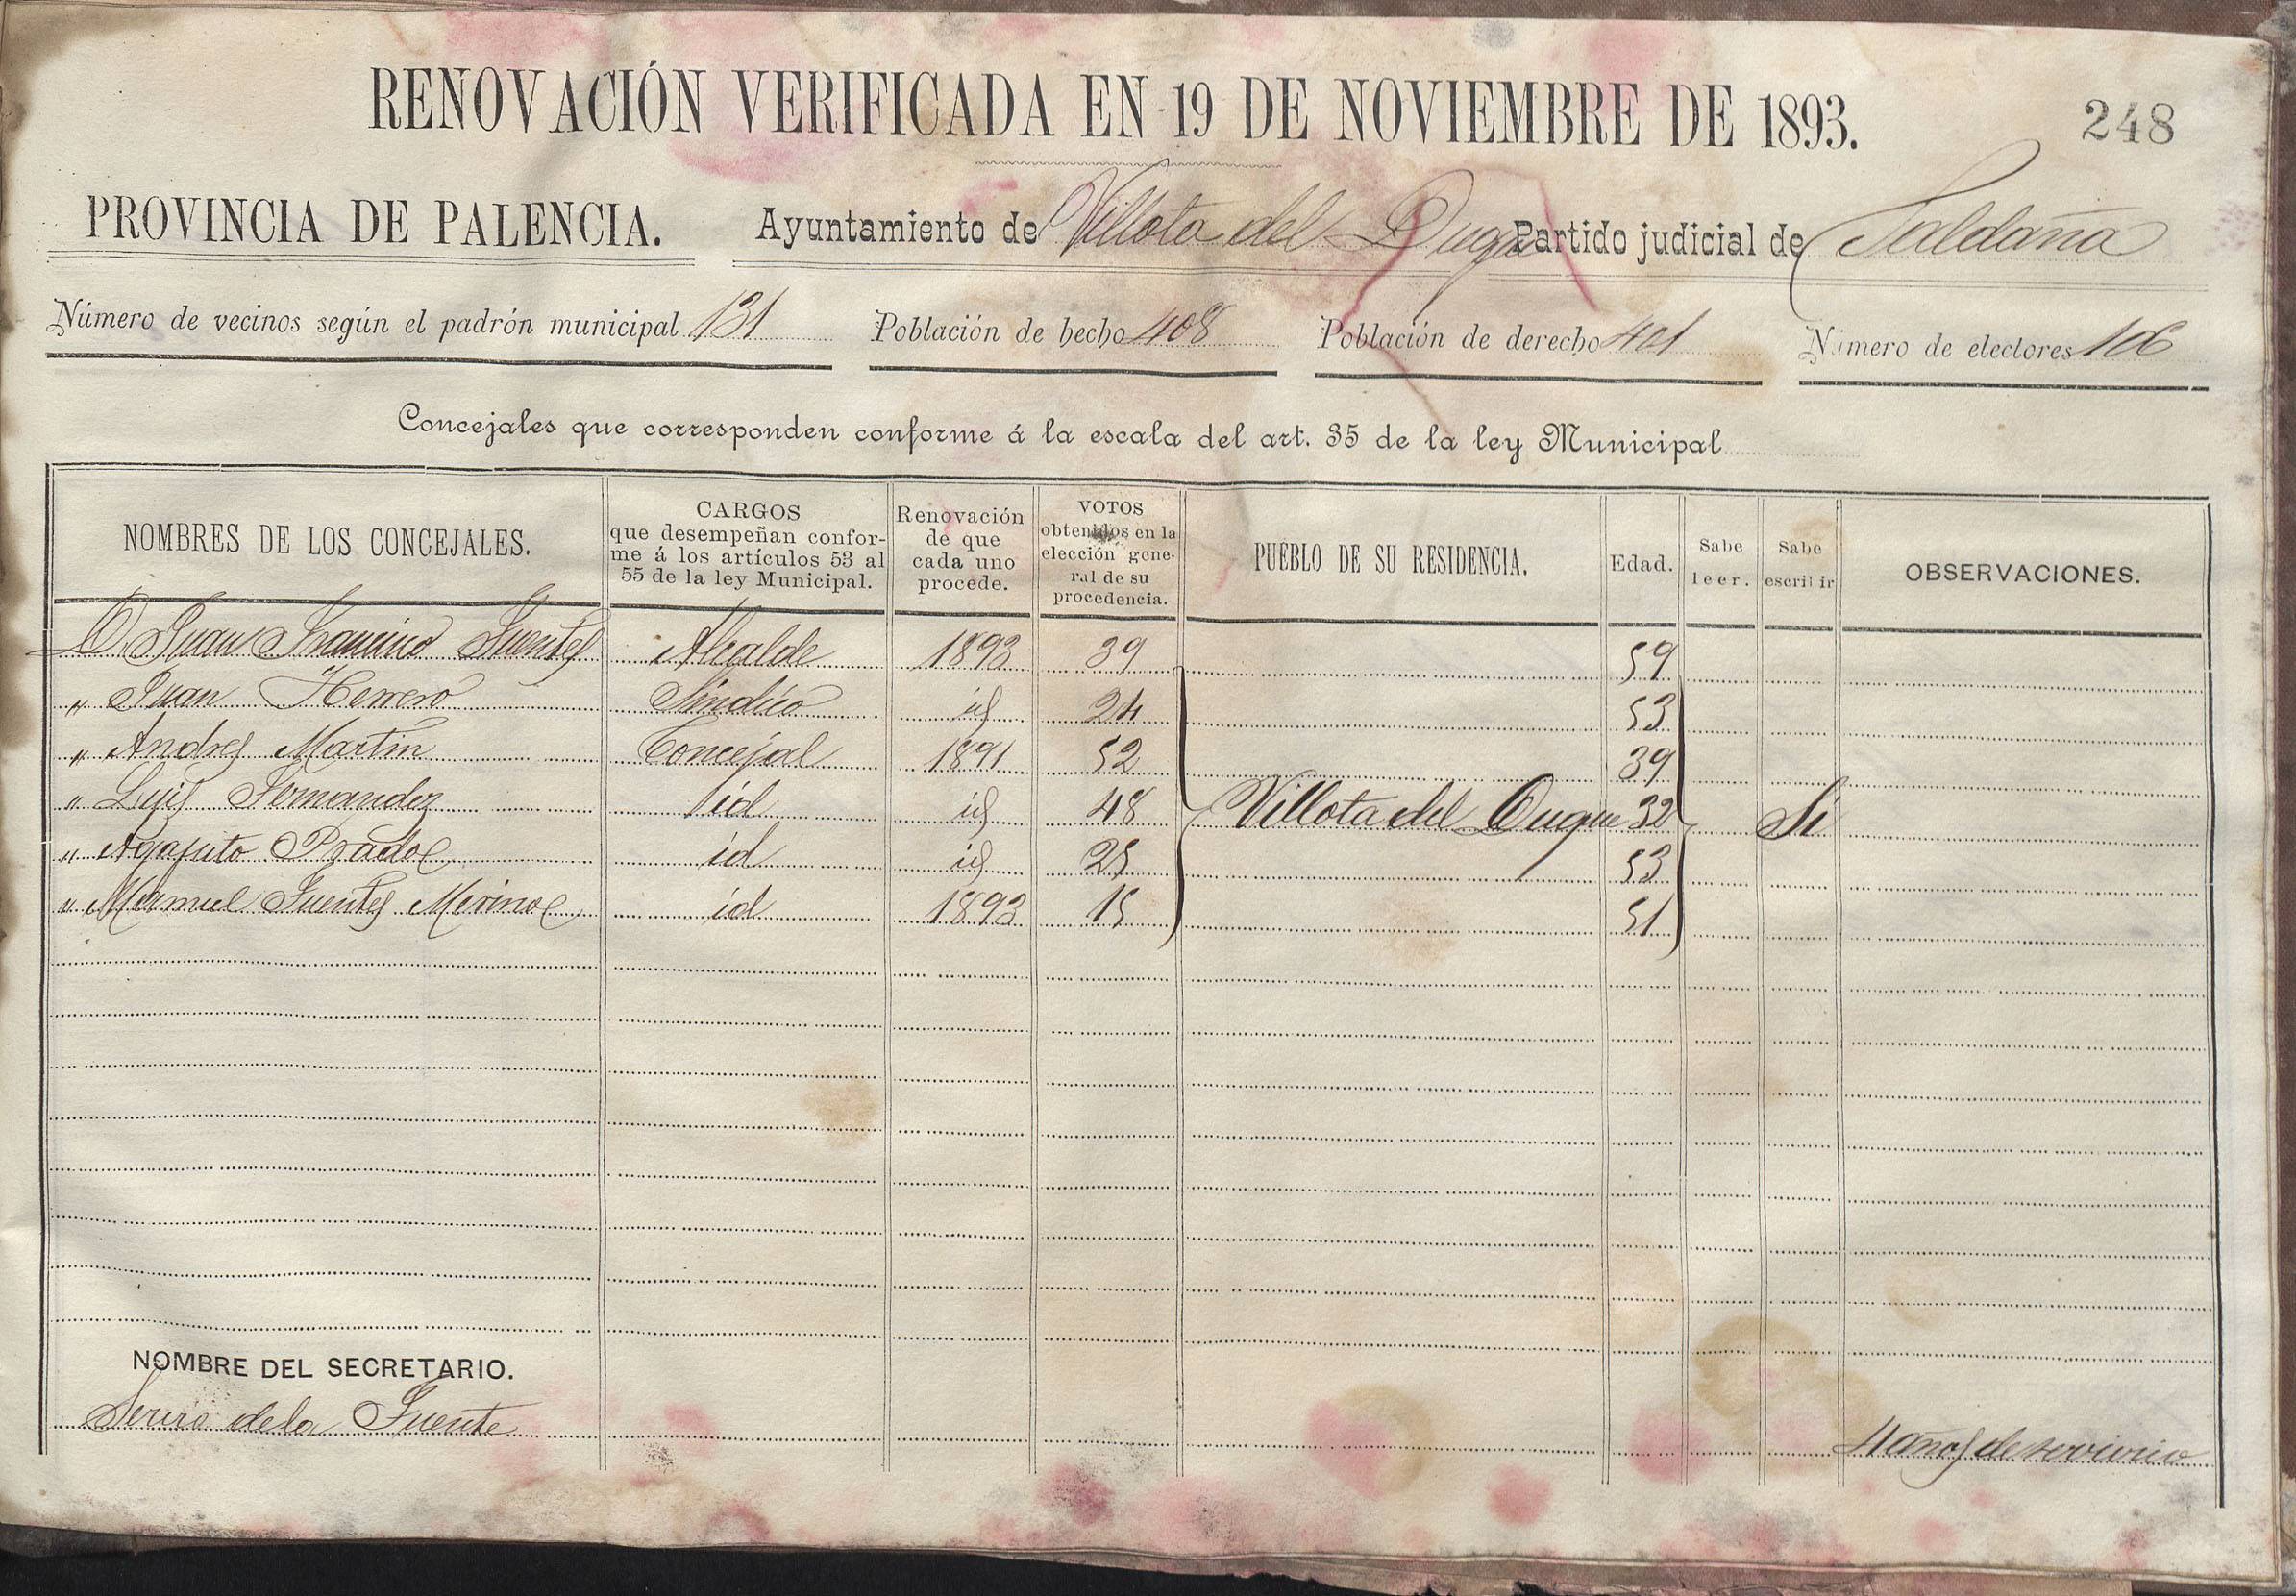 RENOVACIÓN VERIFICADA EN 19 DE NOVIEMBRE DE 1893.
248
PROVINCIA DE PALENCIA. Ayuntamiento de Villota del Duque Partido judicial de Saldaña
Número de vecinos según el padrón municipal 131 Población de hecho 408 Población de derecho 401 Número de electores 106
Concejales que corresponden conforme á la escala del art. 35 de la ley Municipal
NOMBRES DE LOS CONCEJALES.
CARGOS
que desempeñan confor-
me á los artículos 53 al
55 de la ley Municipal.
Renovación
de que
cada uno
procede.
VOTOS
obtenidos en la
elección gene-
ral de su
procedencia.
PUEBLO DE SU RESIDENCIA.
Edad.
Sabe
leer.
Sabe
escribir
OBSERVACIONES.
D. Juan Fuentes Alcalde 1893 39 59
" Juan Herrero Síndico id 24 53
" Andres Martin Concejal 1891 52 39
" Luis Fernandez id id 48 Villota del Duque 32 Si
" Agapito Prado id id 25 53
" Manuel Fuentes Merino id 1893 15 51
NOMBRE DEL SECRETARIO.
de la Fuente años de servicio